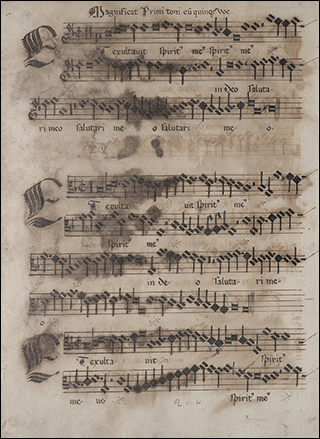 Magnificat Primi toni cū quinqꝫ
Et exultavit spirit⁹ me⁹ spirit⁹ me⁹
in deo saluta
ri meo salutari me o salutari me o.
Et exulta vit spirit⁹ me⁹
spirit⁹ me⁹
in de o saluta ri me
o
Et exulta vit spirit⁹
me us spirit⁹ me⁹